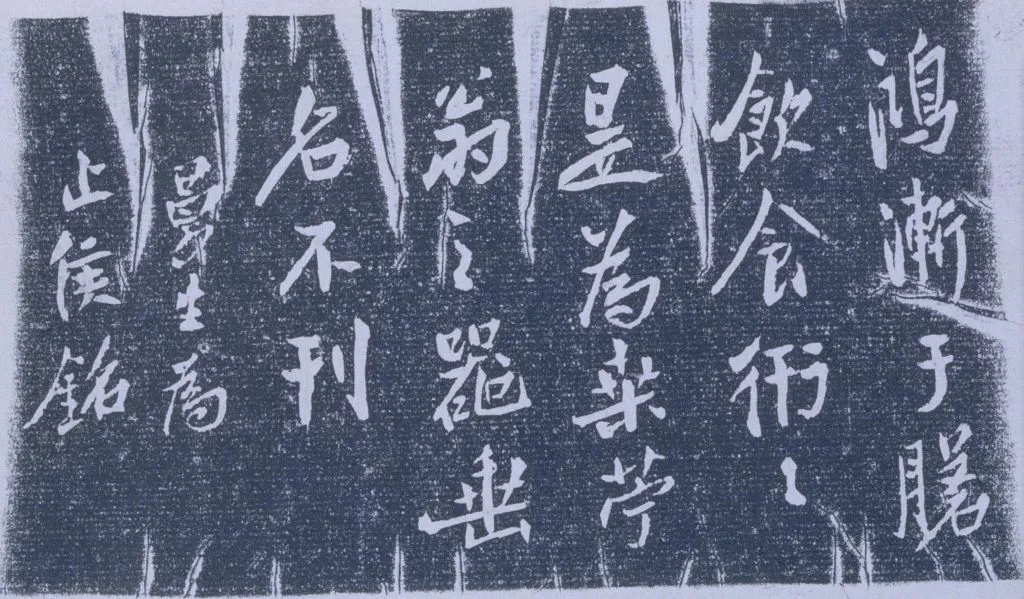 鴻漸于磐
飲食衎〻
是為桒苧
翁之器垂
名不刊
曼生為
止侯銘